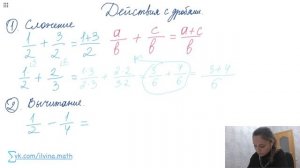 Действия с дробями
① Сложение
1/2 + 3/2 = 1+3/2 a/в + c/в = a+c/в
1/2 + 2/3 = 1·3/2·3 + 2·2/3·2 = 3/6 + 4/6 = 3+4/6
② Вычитание
1/2 - 1/4 =
vk.com/ilvina.math